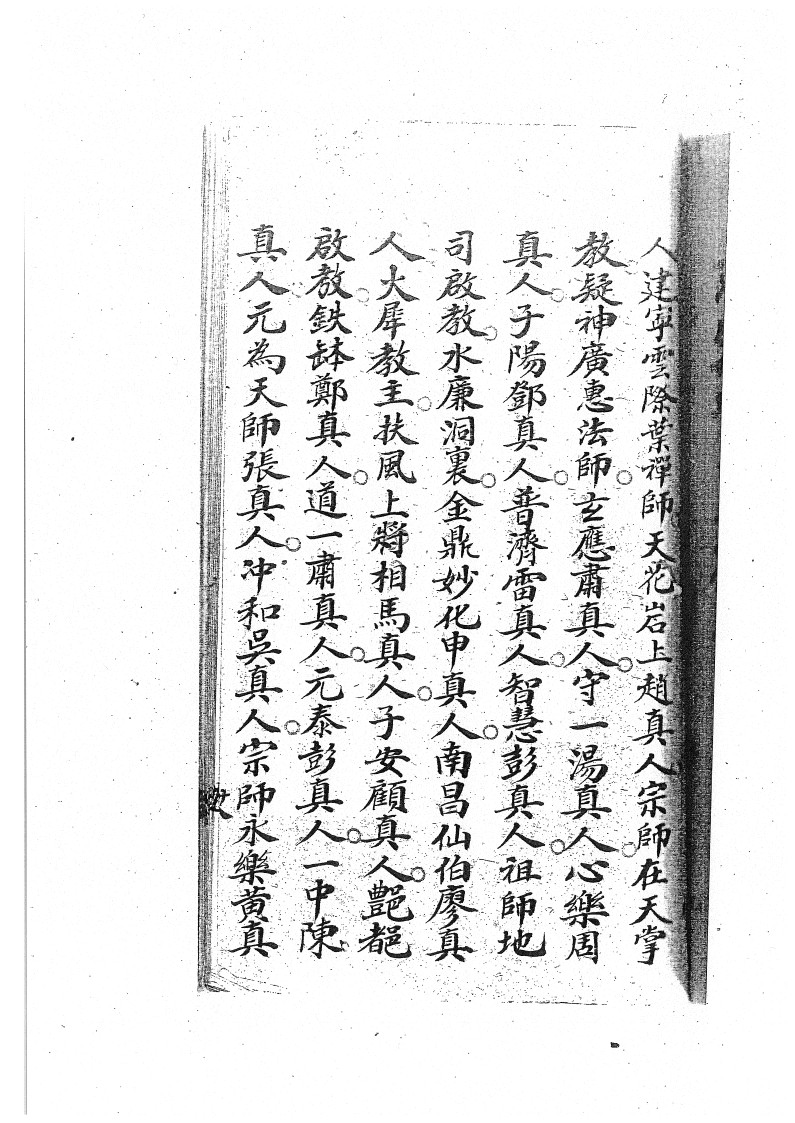 人建寧雲際葉禪師天花岩上趙真人宗師在天掌
教疑神廣惠法師玄應肅真人守一湯真人心樂周
真人子陽鄧真人普濟雷真人智慧彭真人祖師地
司啟教水廉洞裏金鼎妙化申真人南昌仙伯廖真
人大犀教主扶風上將相馬真人子安顧真人艷都
啟教鉄缽鄭真人道一肅真人元泰彭真人一中陳
真人元為天師張真人冲和吳真人宗師永樂黃真